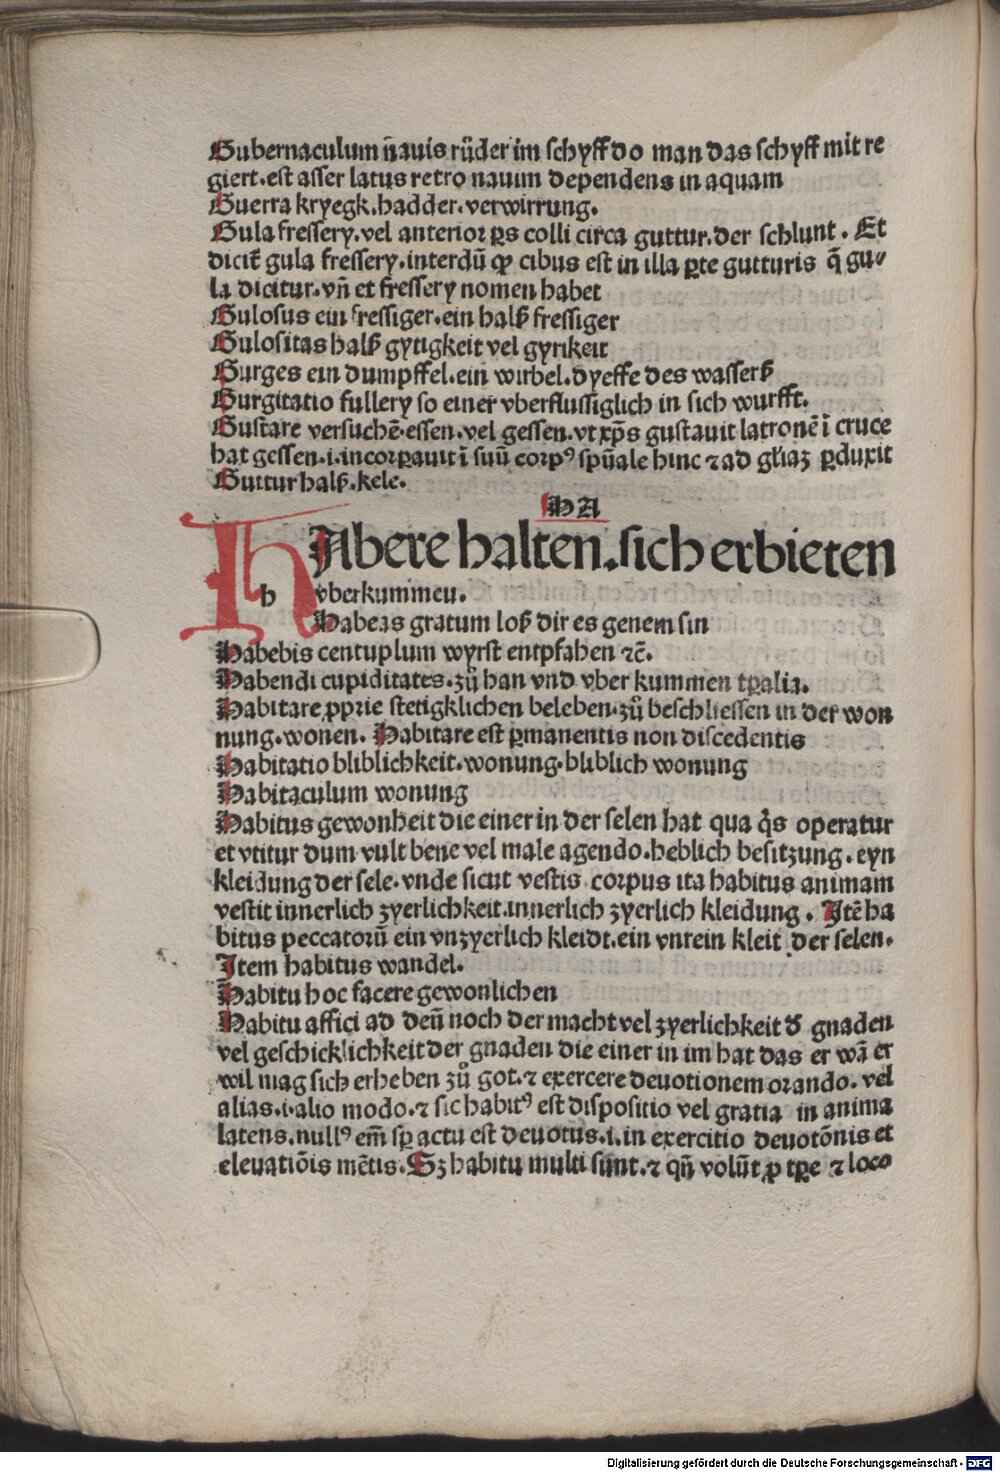 Gubernaculum n̄auis růder im schyff do man das schyff mit re
giert.est asser latus retro nauim dependens in aquam
Guerra kryegk.hadder.verwirrung.
Gula fressery.vel anterior ꝑs colli circa guttur.der schlunt. Et
dicit̄ gula fressery.interdū ꝙ cibus est in illa ꝑte gutturis q̄ gu⸗
la dicitur.vn̄ et fressery nomen habet
Gulosus ein fressiger.ein halß fressiger
Gulositas halß gytigkeit vel gyrikeit
Gurges ein dumpffel.ein wirbel.dyeffe des wasserß
Gurgitatio fullery so einer vberflussiglich in sich wurfft.
Gustare versuchē.essen.vel gessen.vt xp̄s gustauit latronē ī cruce
hat gessen.i.incorꝑauit ī suū corpꝰ spūale hinc ⁊ ad gl̄iaꝫ ꝑduxit
Guttur halß.kele.
HA
HAbere halten.sich erbieten
h vberkummen.
Habeas gratum loß dir es genem sin
Habebis centuplum wyrst entpfahen ⁊c̄.
Habendi cupiditates.zů han vnd vber kummen tꝑalia.
Habitare ꝓprie stetigklichen beleben.zů beschliessen in der won
nung.wonen. Habitare est ꝑmanentis non discedentis
Habitatio bliblichkeit.wonung.bliblich wonung
Habitaculum wonung
Habitus gewonheit die einer in der selen hat qua q̇s operatur
et vtitur dum vult bene vel male agendo.heblich besitzung.eyn
kleidung der sele.vnde sicut vestis corpus ita habitus animam
vestit innerlich zyerlichkeit.innerlich zyerlich kleidung. Itē ha
bitus peccatorū ein vnzyerlich kleidt.ein vnrein kleit der selen.
Item habitus wandel.
Habitu hoc facere gewonlichen
Habitu affici ad deū noch der macht vel zyerlichkeit ď gnaden
vel geschicklichkeit der gnaden die einer in im hat das er wā er
wil mag sich erheben zů got.⁊ exercere deuotionem orando. vel
alias.i.alio modo.⁊ sic habitꝰ est dispositio vel gratia in anima
latens.nullꝰ em̄ sꝑ actu est deuotus.i.in exercitio deuotōnis et
eleuatiōis mētis.Sꝫ habitu multi sunt.⁊ qn̄ volūt ꝓ tꝑe ⁊ loco
Digitalisierung gefördert durch die Deutsche Forschungsgemeinschaft - DFG